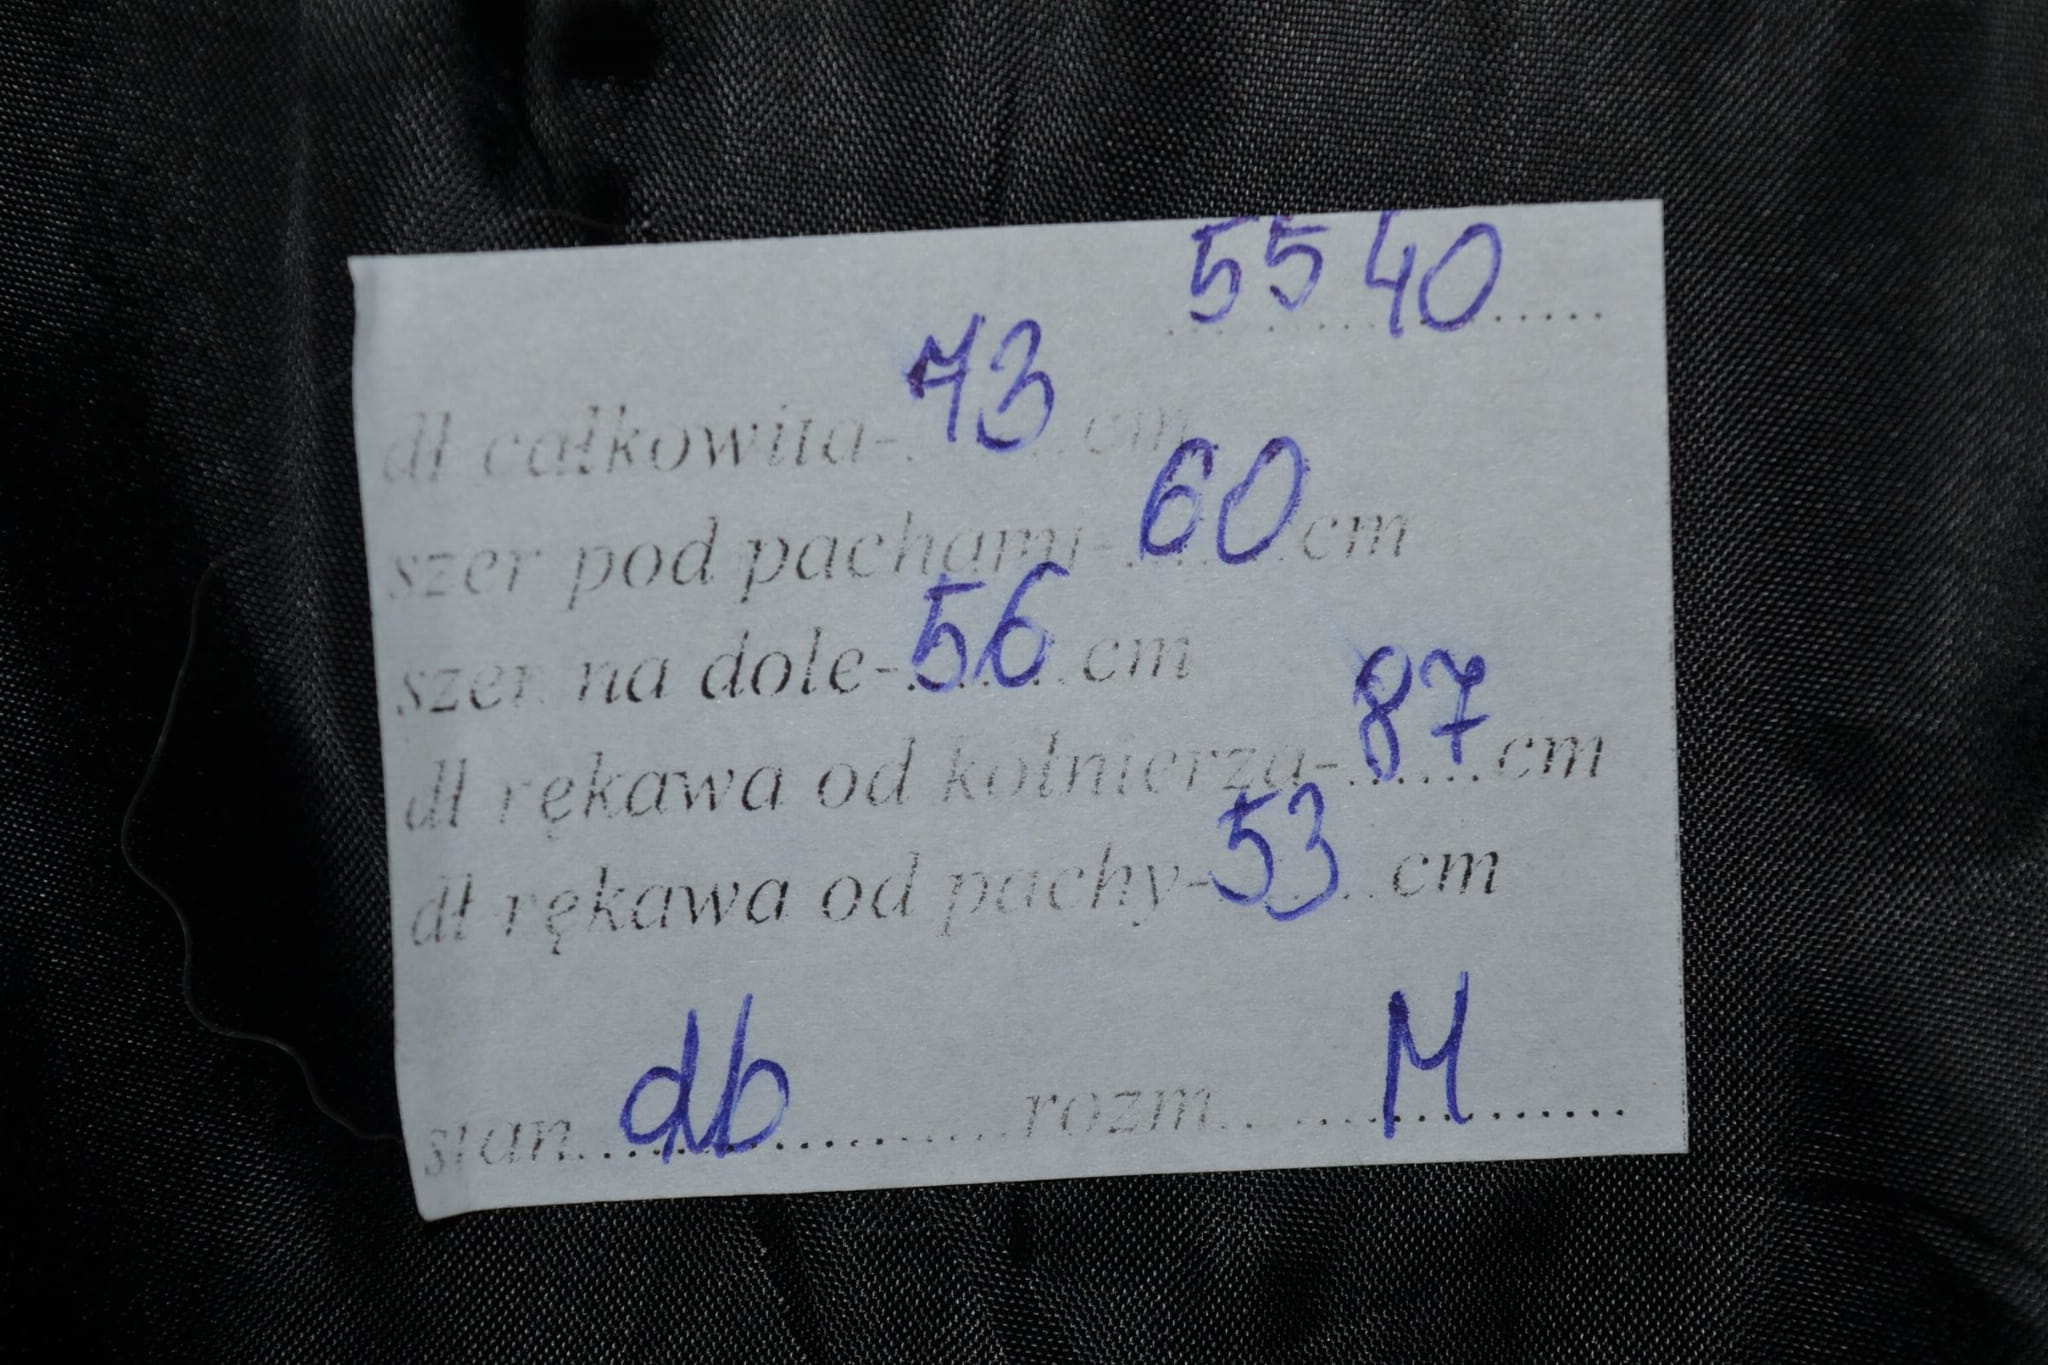 5540
dł całkowita-73cm
szer pod pachami-60cm
szer na dole-56cm
dł rękawa od kołnierza-87cm
dł rękawa od pachy-53cm
stan...db............rozm.......M........